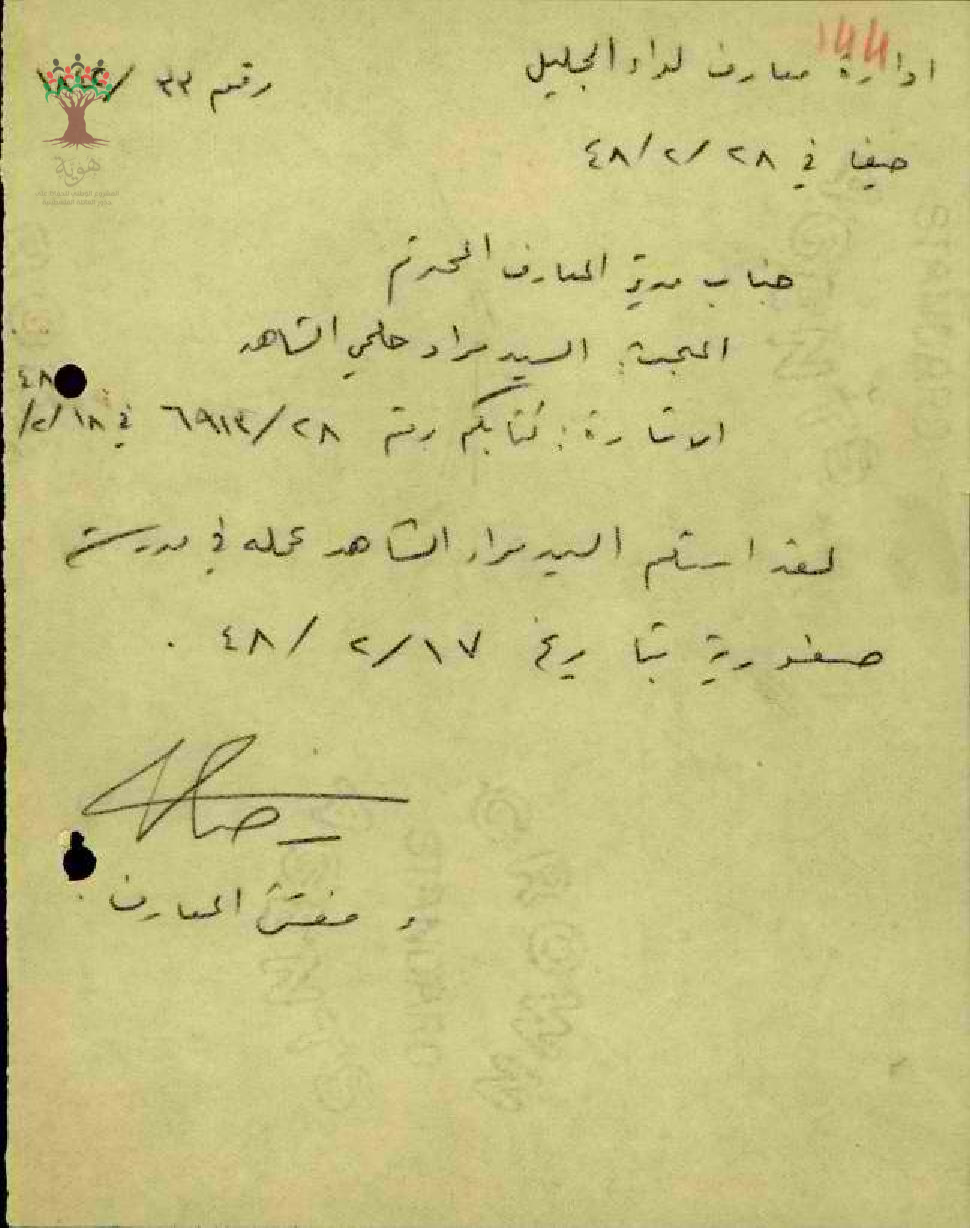 144
ادارة معارف لواء الجليل
رقم ٣٣/
حيفا في ٢٨/٢/٤٨
هوية
جناب مدير المعارف المحترم
المبحث: السيد مراد حلمي الشاهد
الاشارة: كتابكم رقم ٦٩١٣/٢٨ في ١٨/٢/
٤٨
لقد استلم السيد مراد الشاهد عمله في مدرسة
صفورية بتاريخ ١٧/٢/٤٨.
مفتش المعارف